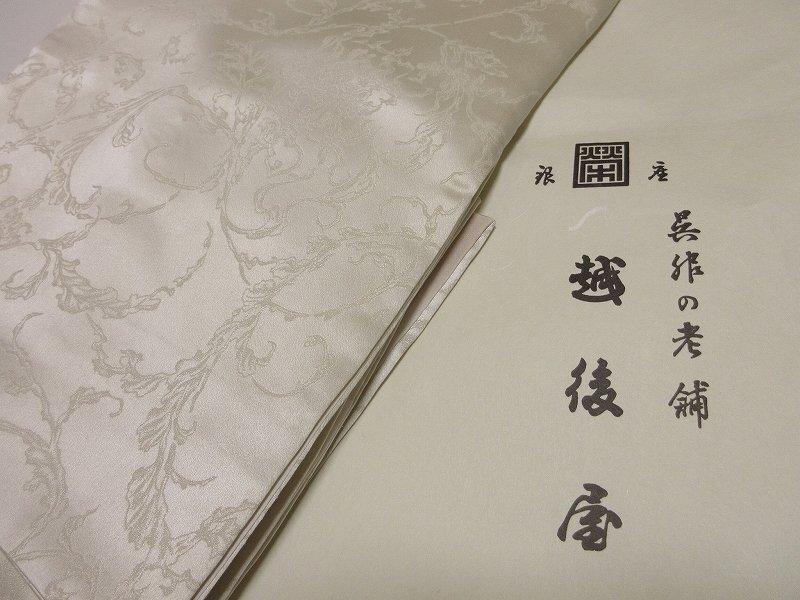 呉服の老舗
銀座
榮
越後屋